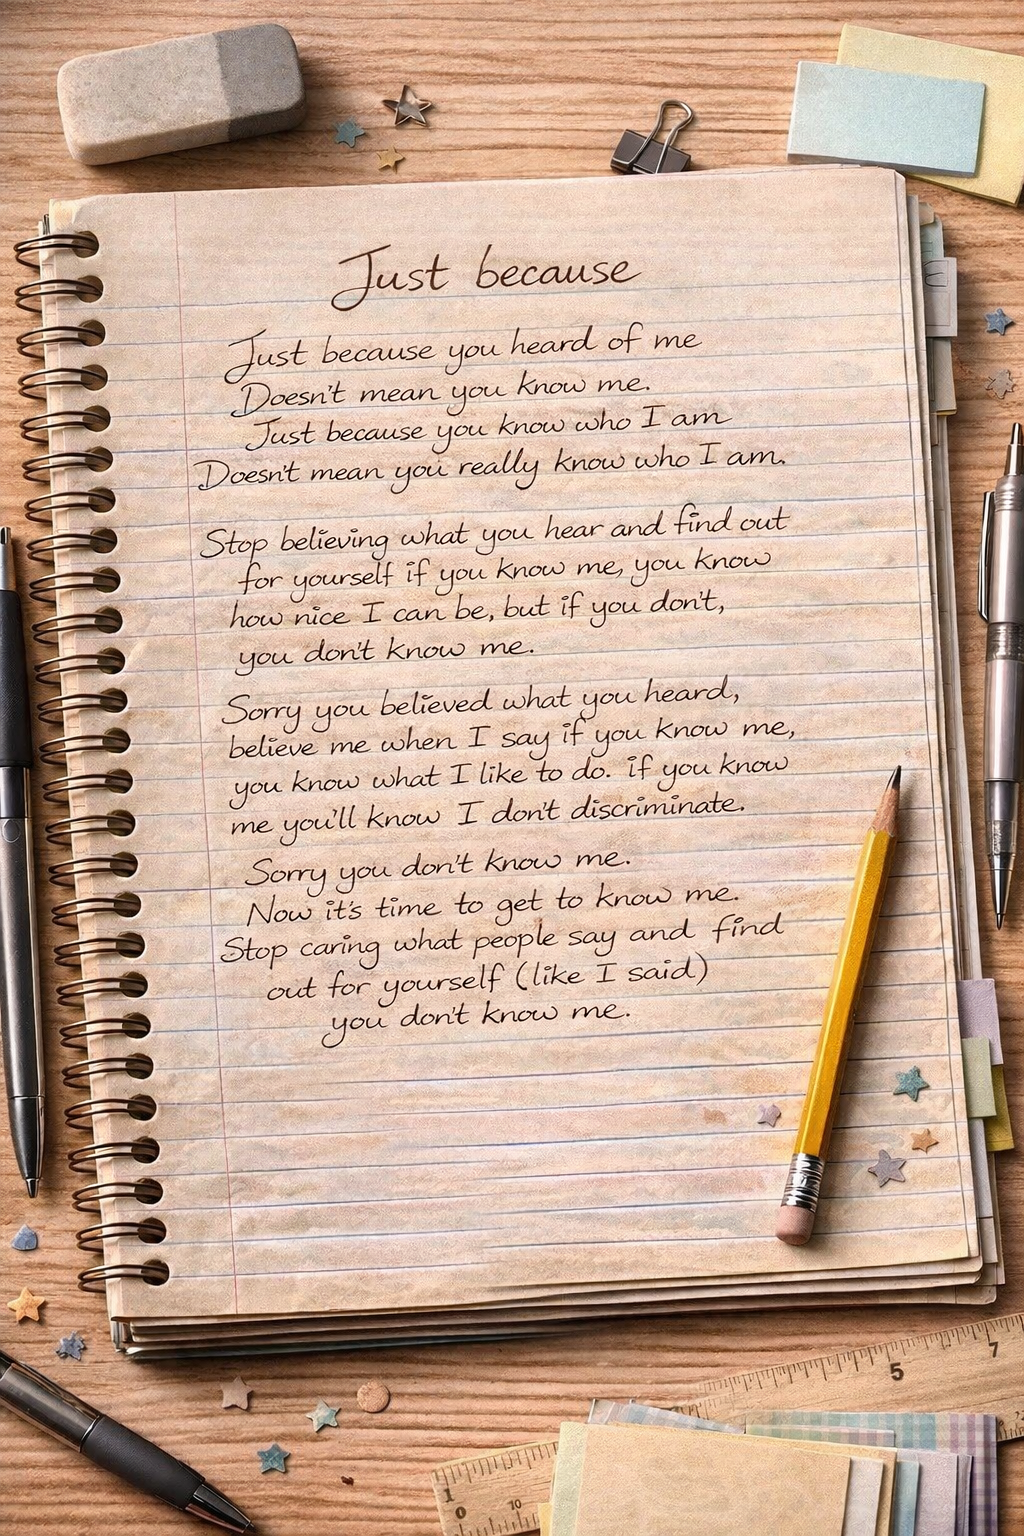 Just because
Just because you heard of me
Doesn't mean you know me.
Just because you know who I am
Doesn't mean you really know who I am.
Stop believing what you hear and find out
for yourself if you know me, you know
how nice I can be, but if you don't,
you don't know me.
Sorry you believed what you heard,
believe me when I say if you know me,
you know what I like to do. if you know
me you'll know I don't discriminate.
Sorry you don't know me.
Now it's time to get to know me.
Stop caring what people say and find
out for yourself (like I said)
you don't know me.
5
7
1
0
10